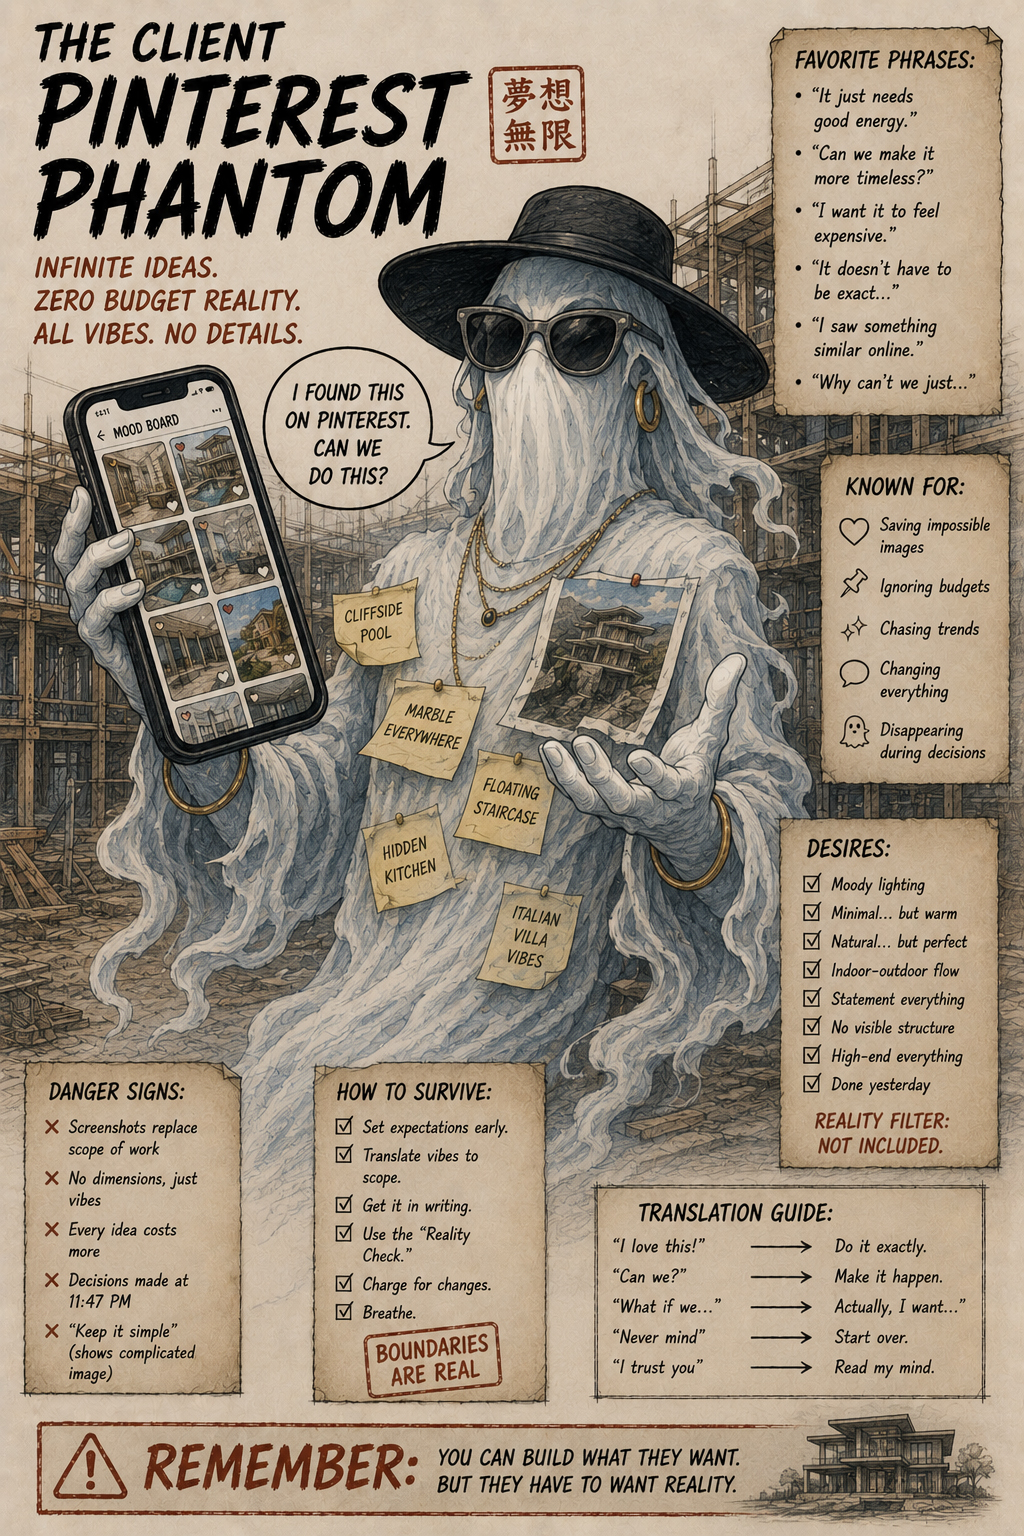 THE CLIENT
PINTEREST
PHANTOM
夢想
無限
INFINITE IDEAS.
ZERO BUDGET REALITY.
ALL VIBES. NO DETAILS.
I FOUND THIS
ON PINTEREST.
CAN WE
DO THIS?
MOOD BOARD
CLIFFSIDE
POOL
MARBLE
EVERYWHERE
FLOATING
STAIRCASE
HIDDEN
KITCHEN
ITALIAN
VILLA
VIBES
FAVORITE PHRASES:
• “It just needs
good energy.”
• “Can we make it
more timeless?”
• “I want it to feel
expensive.”
• “It doesn’t have to
be exact...”
• “I saw something
similar online.”
• “Why can’t we just...”
KNOWN FOR:
Saving impossible
images
Ignoring budgets
Chasing trends
Changing
everything
Disappearing
during decisions
DESIRES:
Moody lighting
Minimal... but warm
Natural... but perfect
Indoor-outdoor flow
Statement everything
No visible structure
High-end everything
Done yesterday
REALITY FILTER:
NOT INCLUDED.
DANGER SIGNS:
Screenshots replace
scope of work
No dimensions, just
vibes
Every idea costs
more
Decisions made at
11:47 PM
“Keep it simple”
(shows complicated
image)
HOW TO SURVIVE:
Set expectations early.
Translate vibes to
scope.
Get it in writing.
Use the “Reality
Check.”
Charge for changes.
Breathe.
BOUNDARIES
ARE REAL
TRANSLATION GUIDE:
“I love this!” → Do it exactly.
“Can we?” → Make it happen.
“What if we...” → Actually, I want...”
“Never mind” → Start over.
“I trust you” → Read my mind.
REMEMBER:
YOU CAN BUILD WHAT THEY WANT.
BUT THEY HAVE TO WANT REALITY.